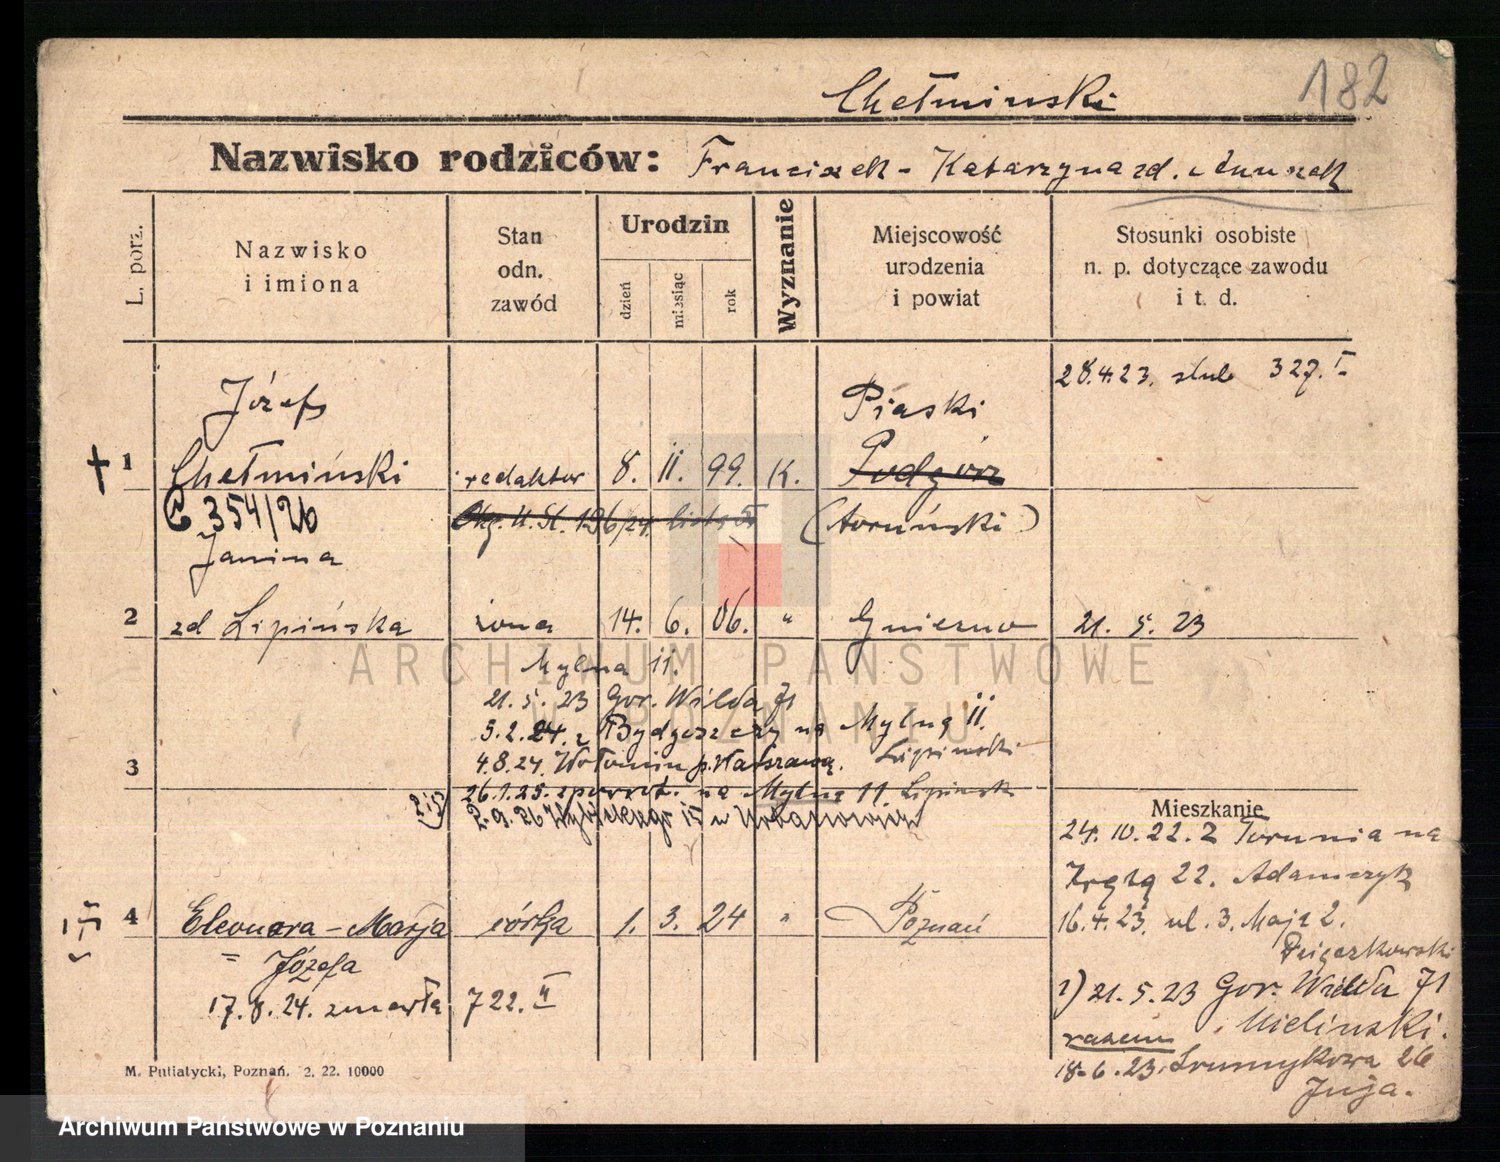 182
Chełminski
Nazwisko rodziców: Franciszek - Katarzyna zd.
L. porz.
Nazwisko
i imiona
Stan
odn.
zawód
Urodzin
dzień
miesiąc
rok
Wyznanie
Miejscowość
urodzenia
i powiat
Stosunki osobiste
n. p. dotyczące zawodu
i t. d.
28.4.23. ślub 327.I
Józef
Piaski
1 Chełmiński redaktor 8. 11. 99. K. Podgórz
354/26
(toruński)
Janina
2 zd Lipińska żona 14. 6. 06. " Gniezno 21. 5. 23
Mylna 11.
21. 5. 23 Gor. Wilda 71
5.2.24. z Bydgoszczy na Mylną 11.
Lipinski
3 4.8.24. Wołomin p. Warszawą.
26.1.25. zpowrot. na Mylną 11 Lipinski
2.9.26 15
Mieszkanie
24. 10. 22. Z Torunia na
22. Adamczyk
16.4.23. ul. 3. Maja 2.
4 Eleonora - Marja córka 1. 3. 24 " Poznań
= Józefa
17.8.24. zmarła 722. II
1) 21.5.23 Gor. Wilda 71
razem
18.6.23. 26
M. Putiatycki, Poznań. 2. 22. 10000
ARCHIWUM PAŃSTWOWE
W POZNANIU
Archiwum Państwowe w Poznaniu